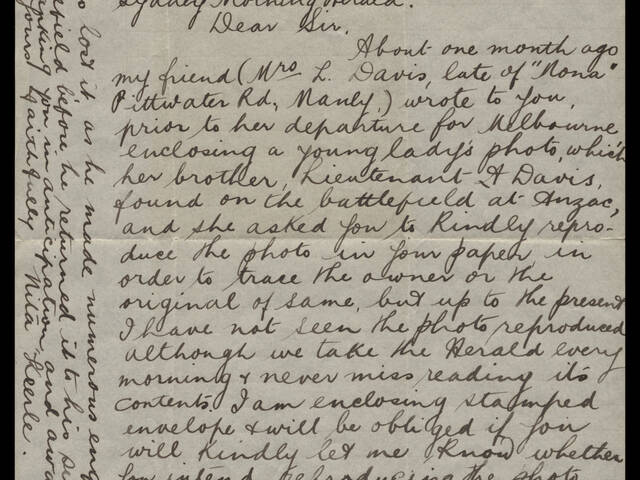 Sydney Morning Herald.
Dear Sir,
About one month ago
my friend (Mrs L. Davis, late of "Nona"
Pittwater Rd, Manly,) wrote to you,
prior to her departure for Melbourne
enclosing a young lady's photo, which
her brother, Lieutenant A Davis,
found on the battlefield at Anzac,
and she asked you to kindly repro-
duce the photo in your paper, in
order to trace the owner or the
original of same, but up to the present
I have not seen the photo reproduced
although we take the Herald every
morning & never miss reading its
contents. I am enclosing stamped
envelope & will be obliged if you
will kindly let me know whether
you intend reproducing the photo
lost it as he made numerous enq
field before he returned it to his
you in anticipation and
yours faithfully Nita